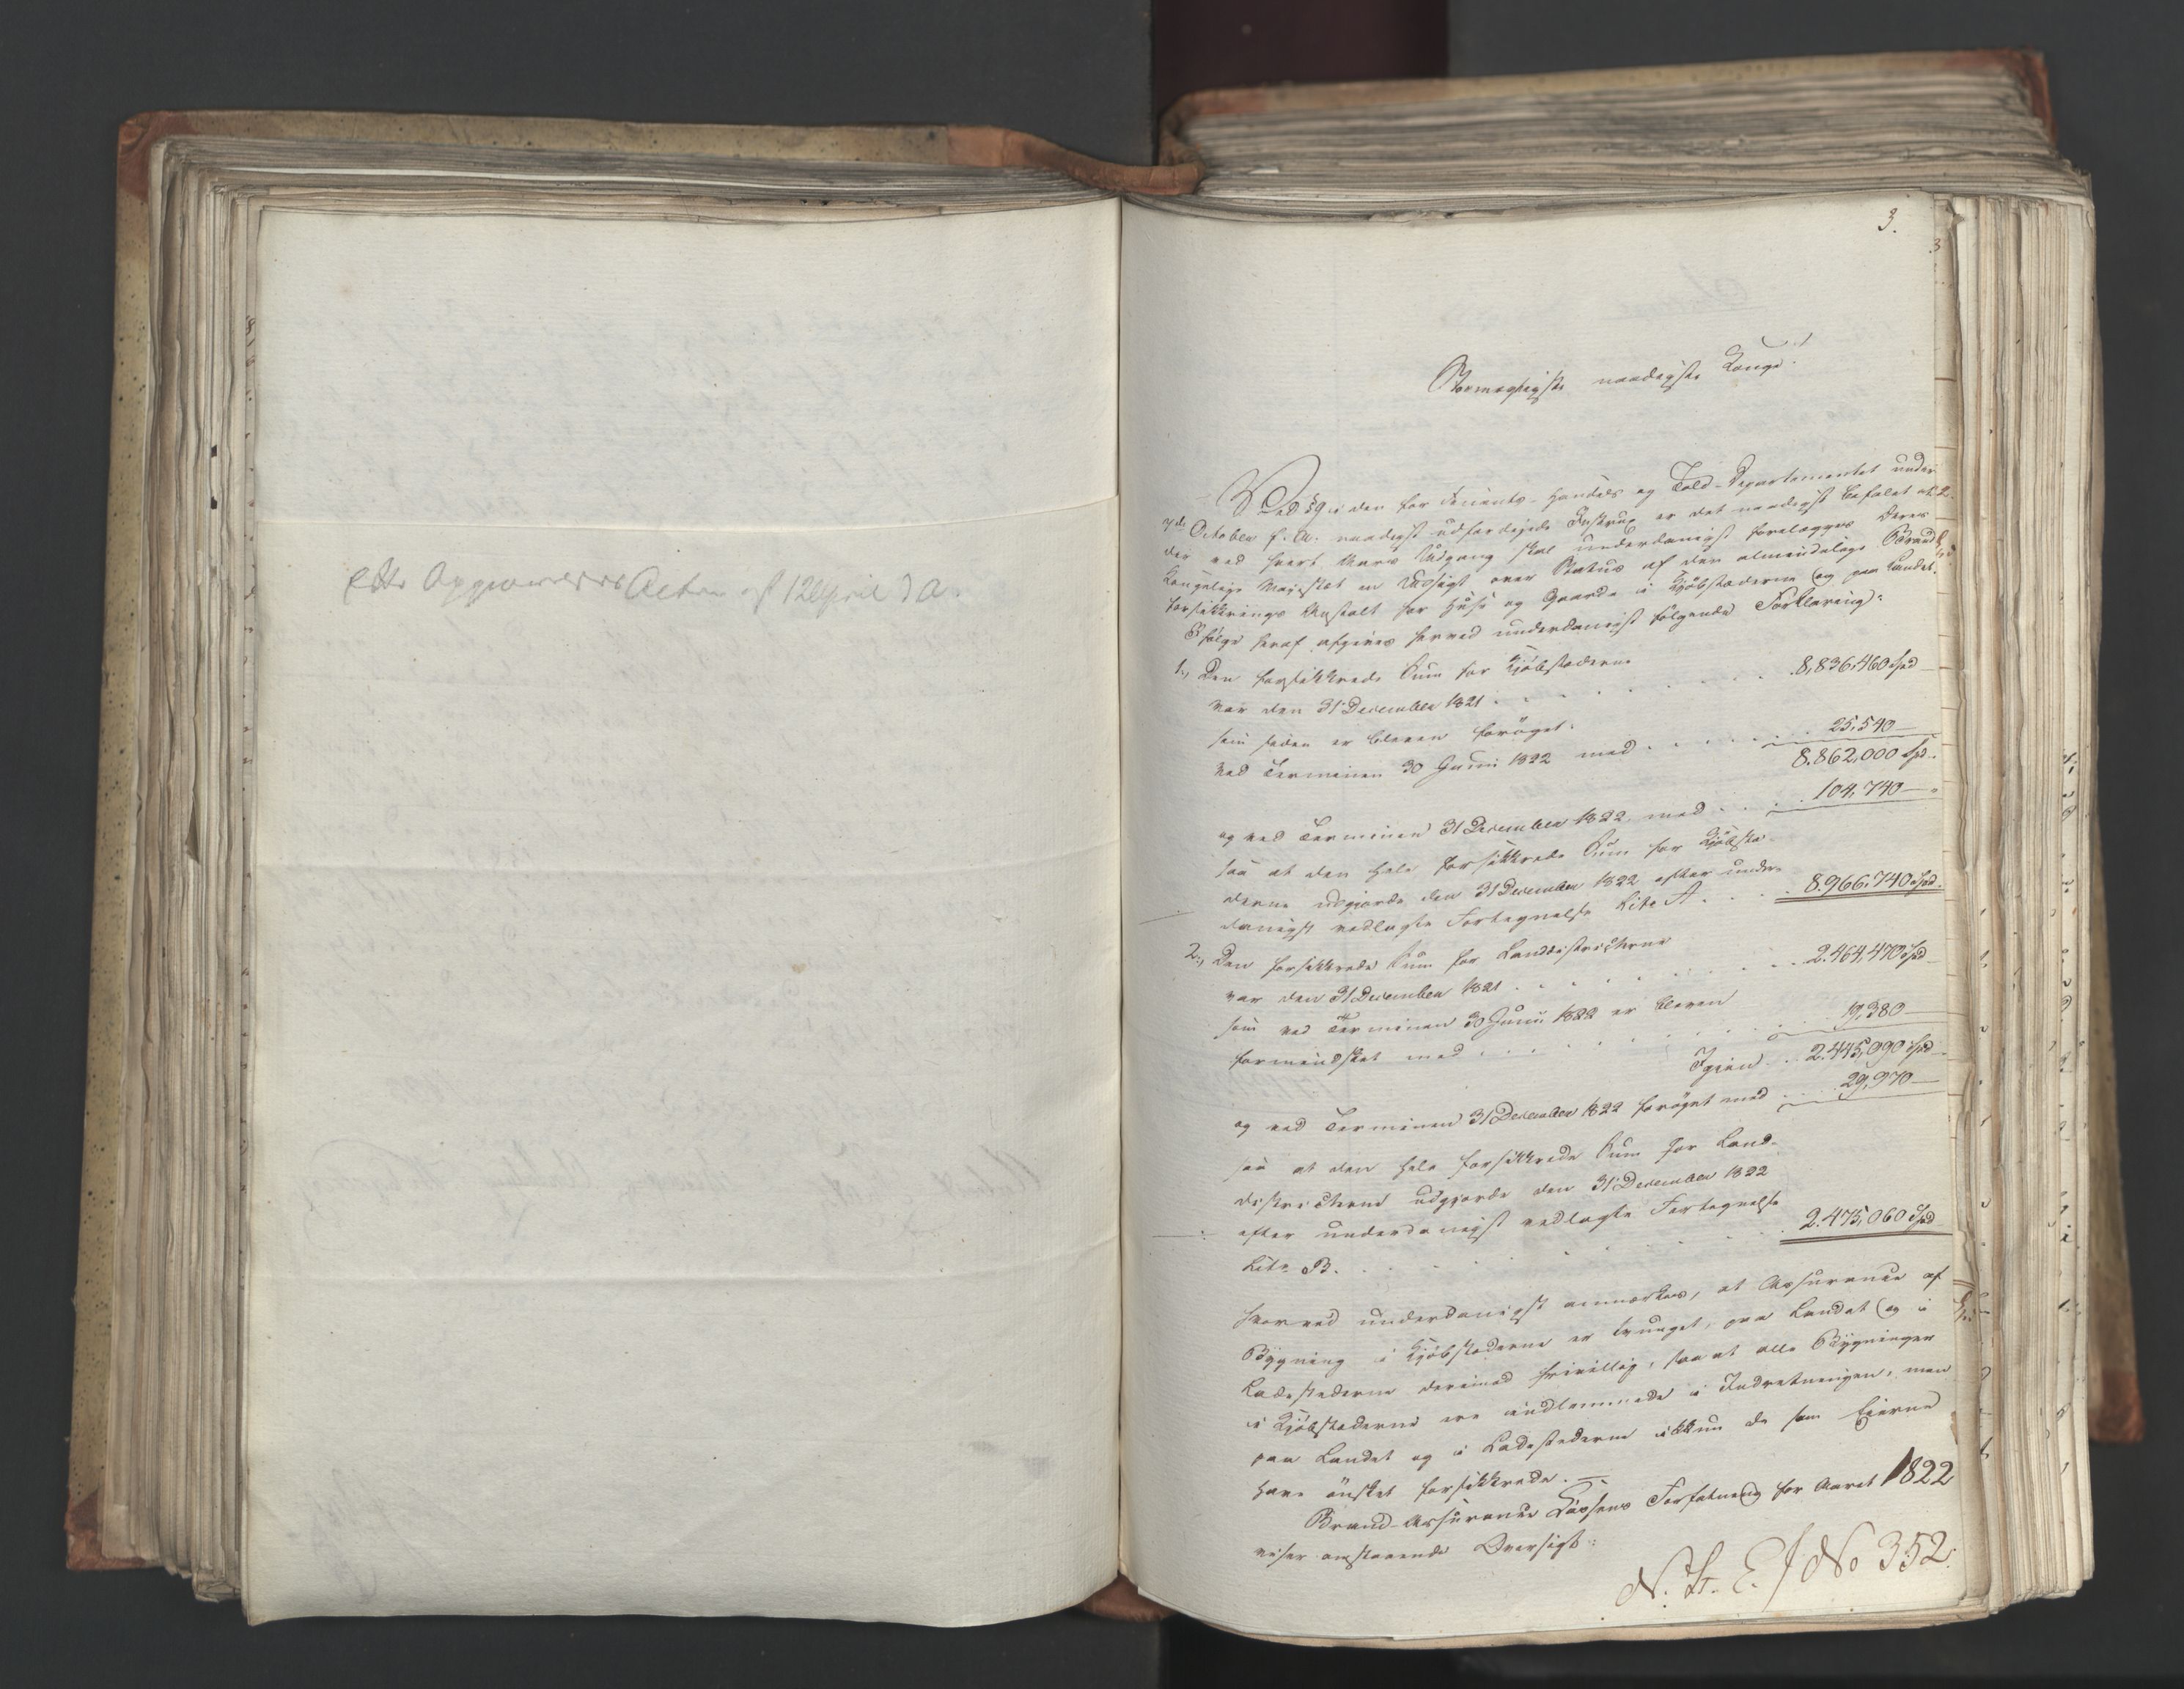 Actrn af 12 April d A.
3.
Stormægtigste naadigste Konge!
Ved § 9 i den for Finants- Handels og Told-Departementet under
7de October f. A. naadigst udfærdigede Instrux er det naadigst befalet at
der ved hvert Aars Udgang skal underdanigst forelægges Deres
Kongelige Majestæt en Udsigt over Status af den almindelige Brand
forsikkrings Anstalt for Huse og Gaarde i Kjøbstæderne og paa Landet.
I følge heraf afgives herved underdanigst følgende Forklaring:
1., Den forsikkrede Sum for Kjøbstæderne
var den 31 December 1821 . . . . . . . 8,836,460 Spd
som siden er bleven forøget:
ved Terminen 30 Junii 1822 med . . . . . . 25,540 —
8.862,000 Spd.
og ved Terminen 31 December 1822 med . . . . 104,740 — "
saa at den hele forsikkrede Sum for Kjøbstæ-
derne udgjorde den 31 December 1822 efter under-
danigst vedlagte Fortegnelse Litr A. . . . 8.966,740 Spd.
2., Den forsikkrede Sum for Landdistricterne
var den 31 December 1821 . . . . . . . 2.464,470 Spd
som ved Terminen 30 Junii 1822 er bleven
formindsket med . . . . . . . . 19,380 —
Igjen . . 2.445,090 Spd
og ved Terminen 31 December 1822 forøget med . . . 29,970 —
saa at den hele forsikkrede Sum for Land-
districterne udgjorde den 31 December 1822
efter underdanigst vedlagte Fortegnelse
Litr B. . . . . . . . . . 2.475,060 Spd
Hvorved underdanigst anmærkes, at Assurance af
Bygning i Kjøbstæderne er tvungen, paa Landet og i
Ladestæderne derimod frivillig, saa at alle Bygninger
i Kjøbstæderne ere indlemmede i Indretningen, men
paa Landet og i Ladestederne ikkun de som Eierne
have ønsket forsikkrede. —
Brand-Assurance Cassens Forfatning for Aaret 1822
viser omstaaende Oversigt:
N. St. E. J No 352.